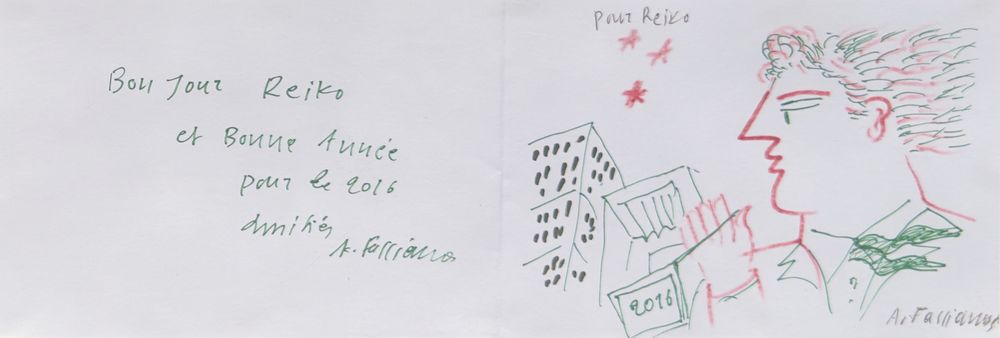 Bon Jour Reiko
et Bonne Année
pour le 2016
Amitiés
A. Fassianos
pour Reiko
2016
A. Fassianos